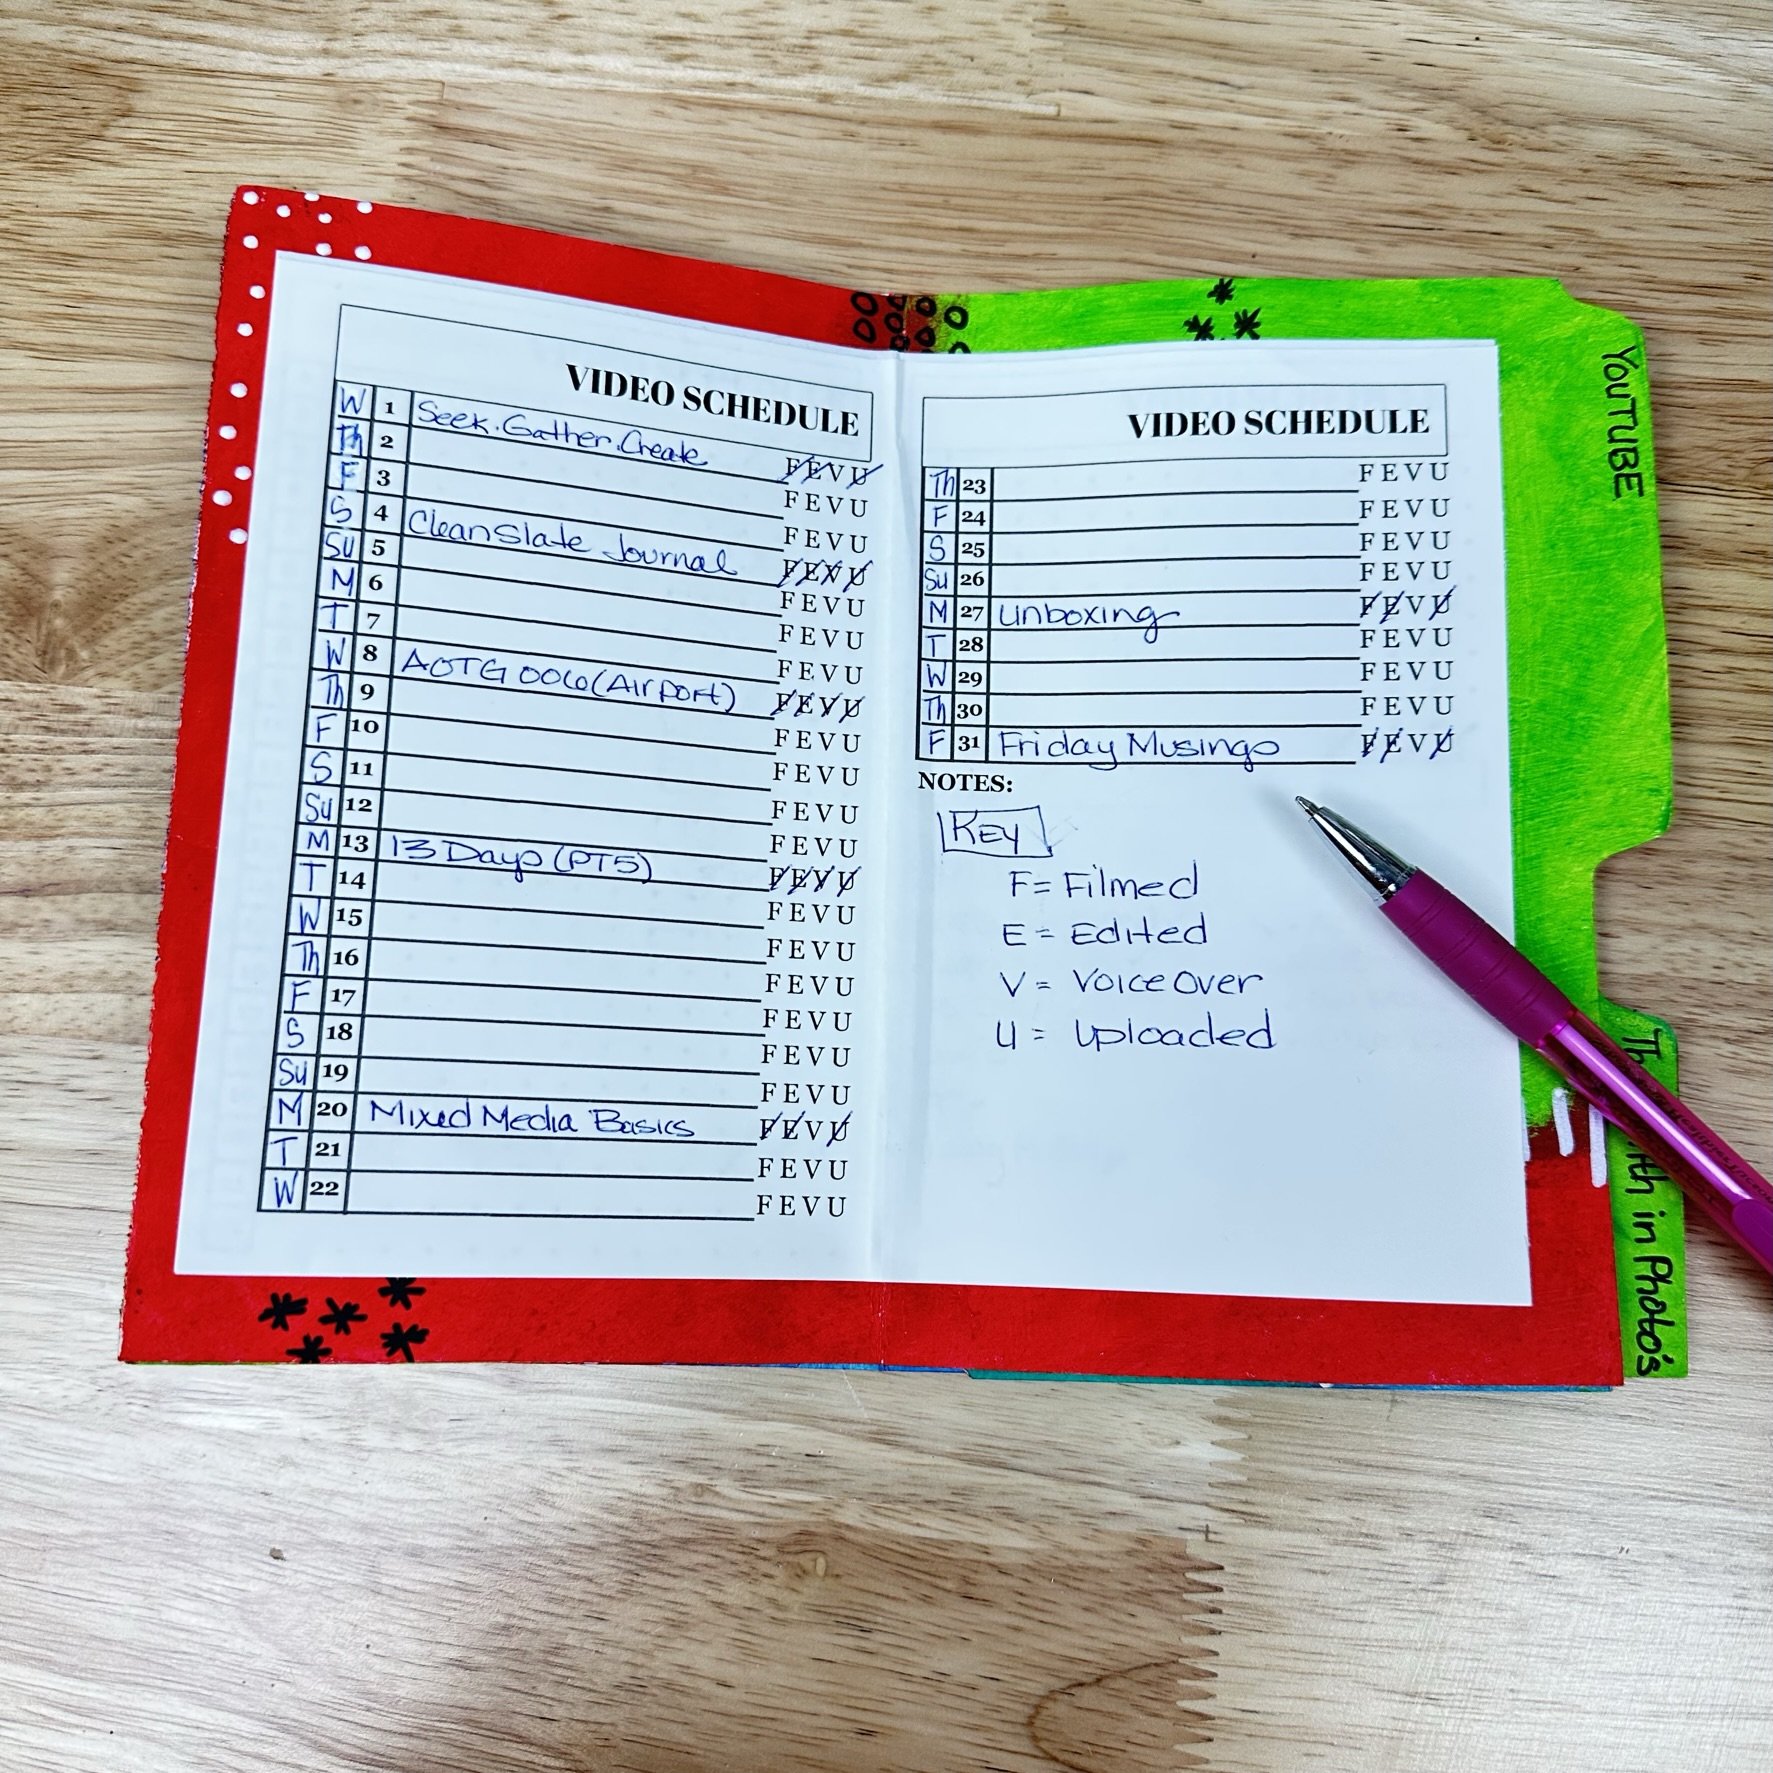 VIDEO SCHEDULE
W 1 Seek.Gather.Create F E V U
Th 2 F E V U
F 3 F E V U
S 4 Clean Slate Journal F E V U
Su 5 F E V U
M 6 F E V U
T 7 F E V U
W 8 AOTG 006 (Airport) F E V U
Th 9 F E V U
F 10 F E V U
S 11 F E V U
Su 12 F E V U
M 13 13 Days (PT5) F E V U
T 14 F E V U
W 15 F E V U
Th 16 F E V U
F 17 F E V U
S 18 F E V U
Su 19 F E V U
M 20 Mixed Media Basics F E V U
T 21 F E V U
W 22 F E V U
VIDEO SCHEDULE
Th 23 F E V U
F 24 F E V U
S 25 F E V U
Su 26 F E V U
M 27 Unboxing F E V U
T 28 F E V U
W 29 F E V U
Th 30 F E V U
F 31 Friday Musings F E V U
NOTES:
KEY
F = Filmed
E = Edited
V = Voice Over
U = Uploaded
YouTUBE
in Photo's